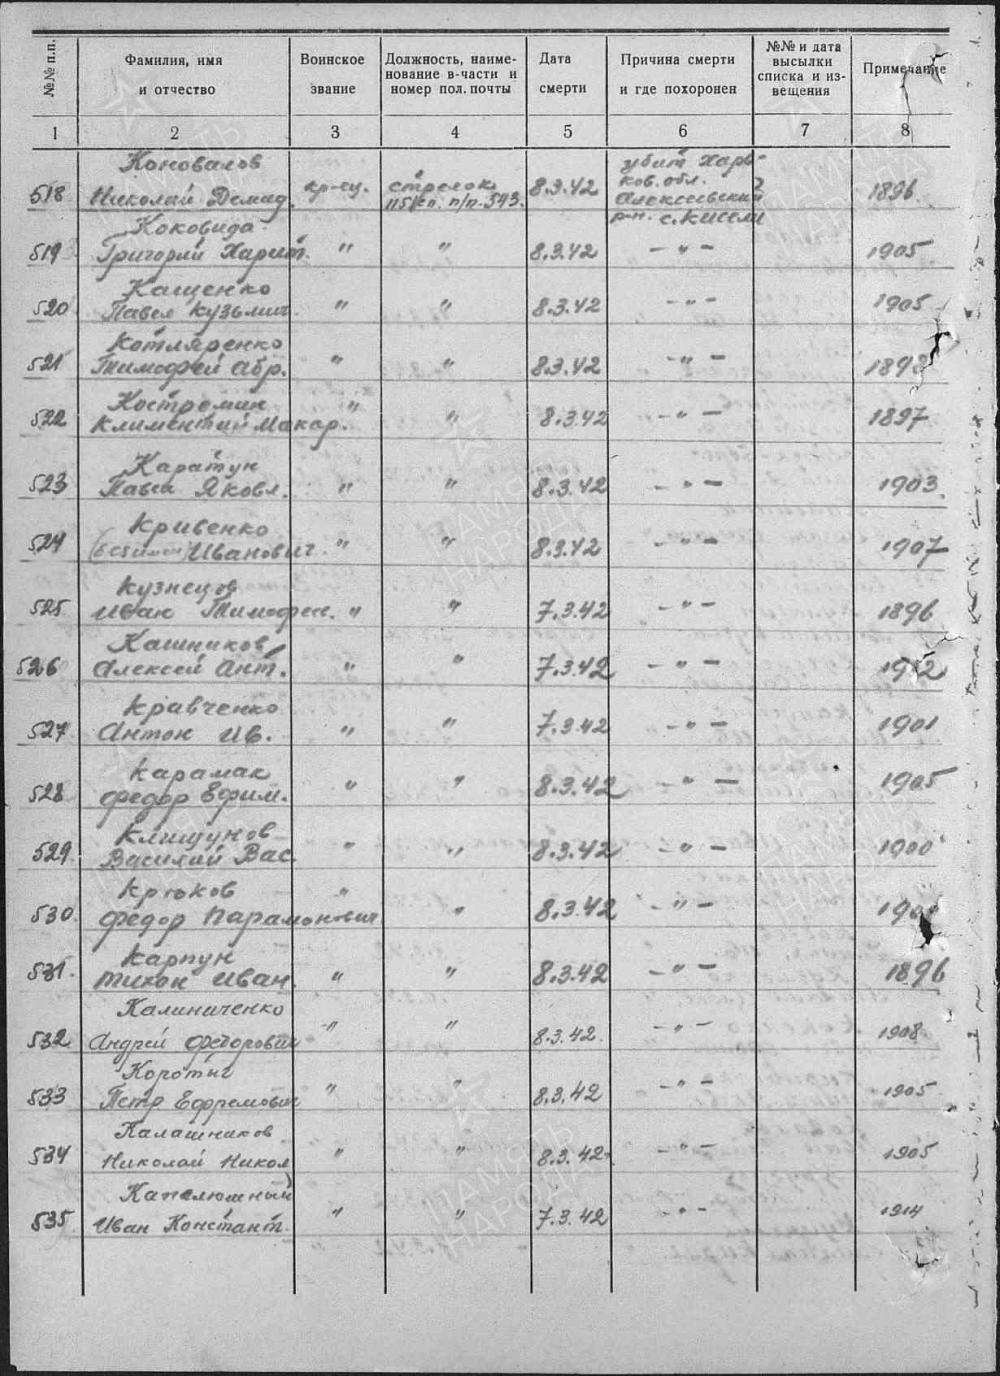 №№ п.п.
Фамилия, имя
и отчество
Воинское
звание
Должность, наиме-
нование в-части и
номер пол. почты
Дата
смерти
Причина смерти
и где похоронен
№№ и дата
высылки
списка и из-
вещения
Примечание
1 2 3 4 5 6 7 8
Коновалов убит Харь-
518 Николай Демид. кр-ец. стрелок 8.3.42 ков. обл. 1896
п/п. 543. Алексеевский
р-н. с. Кисели
Коковида
519 Григорий Харит. " " 8.3.42 - " - 1905
Кащенко
520 Павел Кузьмич " " 8.3.42 - " - 1905
Котляренко
521 Тимофей Абр. " " 8.3.42 - " - 1898
Костромин
522 Климентий Макар. " " 8.3.42 - " - 1897
Каратун
523 Павел Яковл. " " 8.3.42 - " - 1903
Кривенко
524 Иванович " " 8.3.42 - " - 1907
Кузнецов
525 Иван Тимофеев. " " 7.3.42 - " - 1896
Кашников
526 Алексей Ант. " " 7.3.42 - " - 1912
Кравченко
527 Антон Ив. " " 7.3.42 - " - 1901
Карамак
528 Федор Ефим. " " 8.3.42 - " - 1905
Клишунов
529 Василий Вас. " " 8.3.42 - " - 1900
Крюков
530 Федор Парамонович " " 8.3.42 - " -
Карпун
531 Тихон Иван. " " 8.3.42 - " - 1896
Калиниченко
532 Андрей Федорович " " 8.3.42 - " - 1908
Коротыч
533 Петр Ефремович " " 8.3.42 - " - 1905
Калашников
534 Николай Никол " " 8.3.42 - " - 1905
Капелюшный
535 Иван Констант. " " 7.3.42 - " - 1914